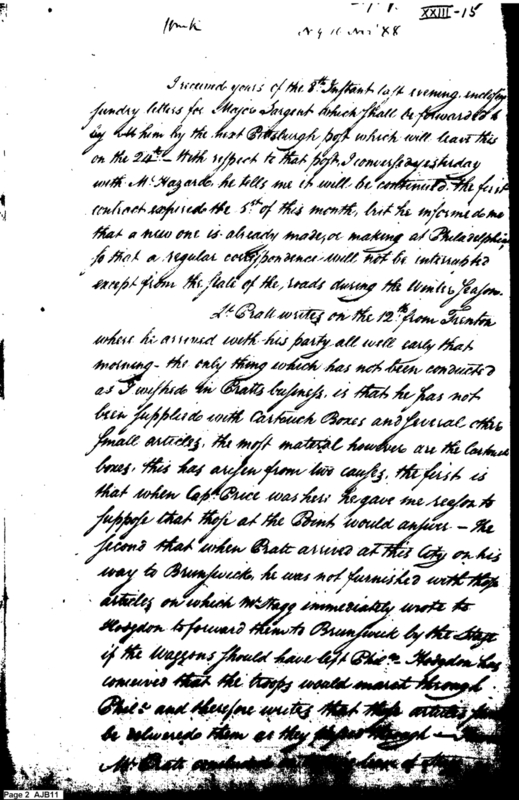 XXIII-15
N Y 16 Nov 88
I received yours of the 8th Instant last evening enclosing
sundry letters for Major Sargent which shall be forwarded
by him by the next Pittsburgh post which will leave this
on the 24th - With respect to that post, I conversed yesterday
with Mr Hazard, he tells me it will be continued. the first
contract expired the 5th of this month, but he informed me
that a new one is already made, or making at Philadelphia
so that a regular correspondence will not be interrupted
except from the state of the roads during the Winter Season.
Lt Pratt writes on the 12th from Trenton
where he arrived with his party all well early that
morning - the only thing which has not been conducted
as I wished in Pratts business, is that he has not
been supplied with Cartouch Boxes and several other
small articles. the most material however are the Cartouch
boxes. this has arisen from two causes, the first is
that when Capt Price was here he gave me reason to
suppose that those at the Point would answer - the
second that when Pratt arrived at this City on his
way to Brunswick, he was not furnished with those
articles on which Mr Stagg immediately wrote to
Hodgdon to forward them to Brunswick by the Stage
if the Waggons should have left Phila - Hodgdon has
conceived that the troops would march through
Phila and therefore writes that those articles
be delivered them as they passed through -
Mr Pratt
Page 2 AJB11